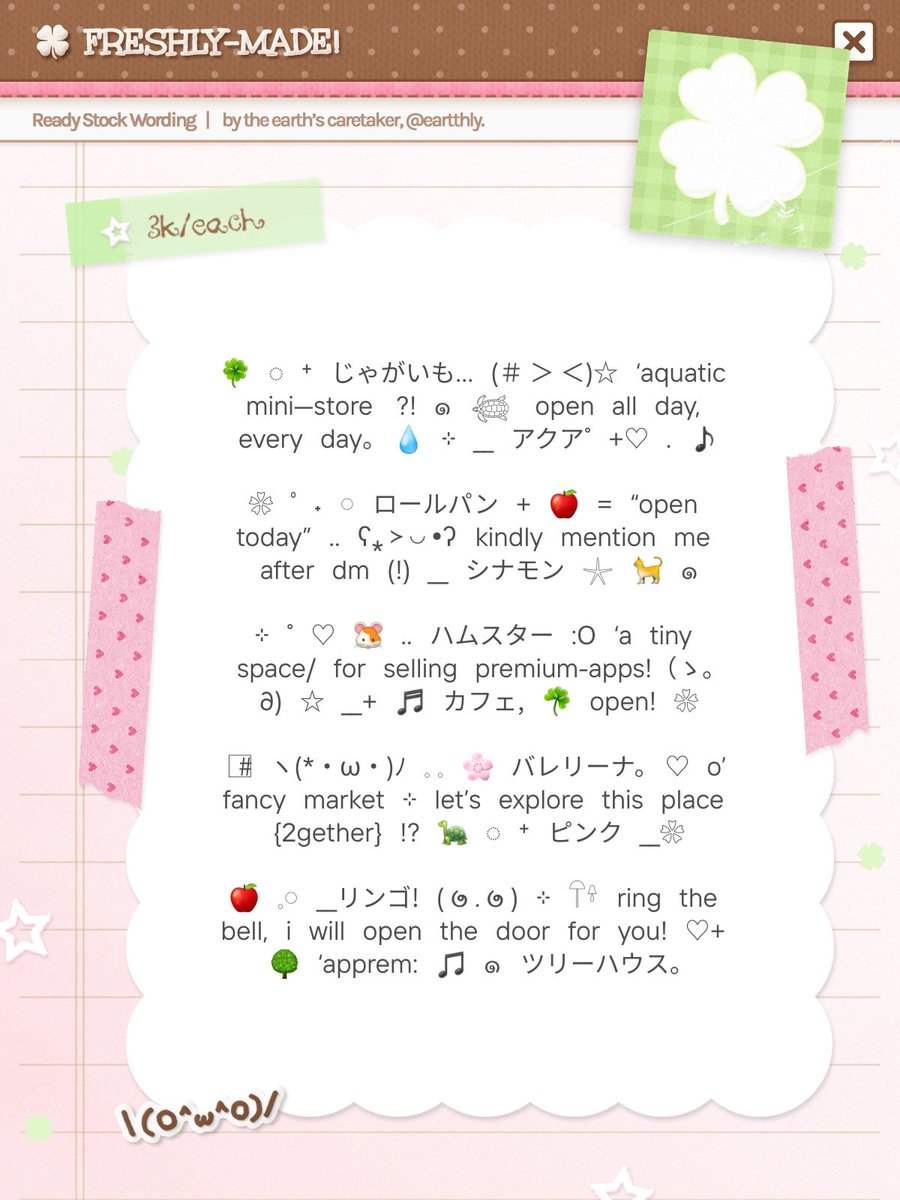 🍀 FRESHLY-MADE!
Ready Stock Wording | by the earth's caretaker, @eartthly.
☆ 3k/each
🍀 ◌ ⁺ じゃがいも... (＃＞＜)☆ ‘aquatic
mini—store ?! ๑ 𓆉 open all day,
every day。 💧 ⊹ __ アクア ﾟ +♡ . ♪
❊ ˚ ˖ ○ ロールパン + 🍎 = “open
today” .. ʕ⁎˃◡•ʔ kindly mention me
after dm (!) __ シナモン 𓇼 🐈 ๑
⊹ ˚ ♡ 🐹 .. ハムスター :O ‘a tiny
space/ for selling premium-apps! (ゝ。
∂) ☆ __+ 🎵 カフェ, ☘️ open! ❊
#️⃣ ヽ(*・ω・)ﾉ 。。 🌸 バレリーナ。 ♡ o’
fancy market ⊹ let’s explore this place
{2gether} !? 🐢 ◌ ⁺ ピンク __❊
🍎 .○ __リンゴ! (๑.๑) ⊹ 𓍊 ring the
bell, i will open the door for you! ♡+
🌳 ‘apprem: 🎵 ๑ ツリーハウス。
\(O^ω^O)/